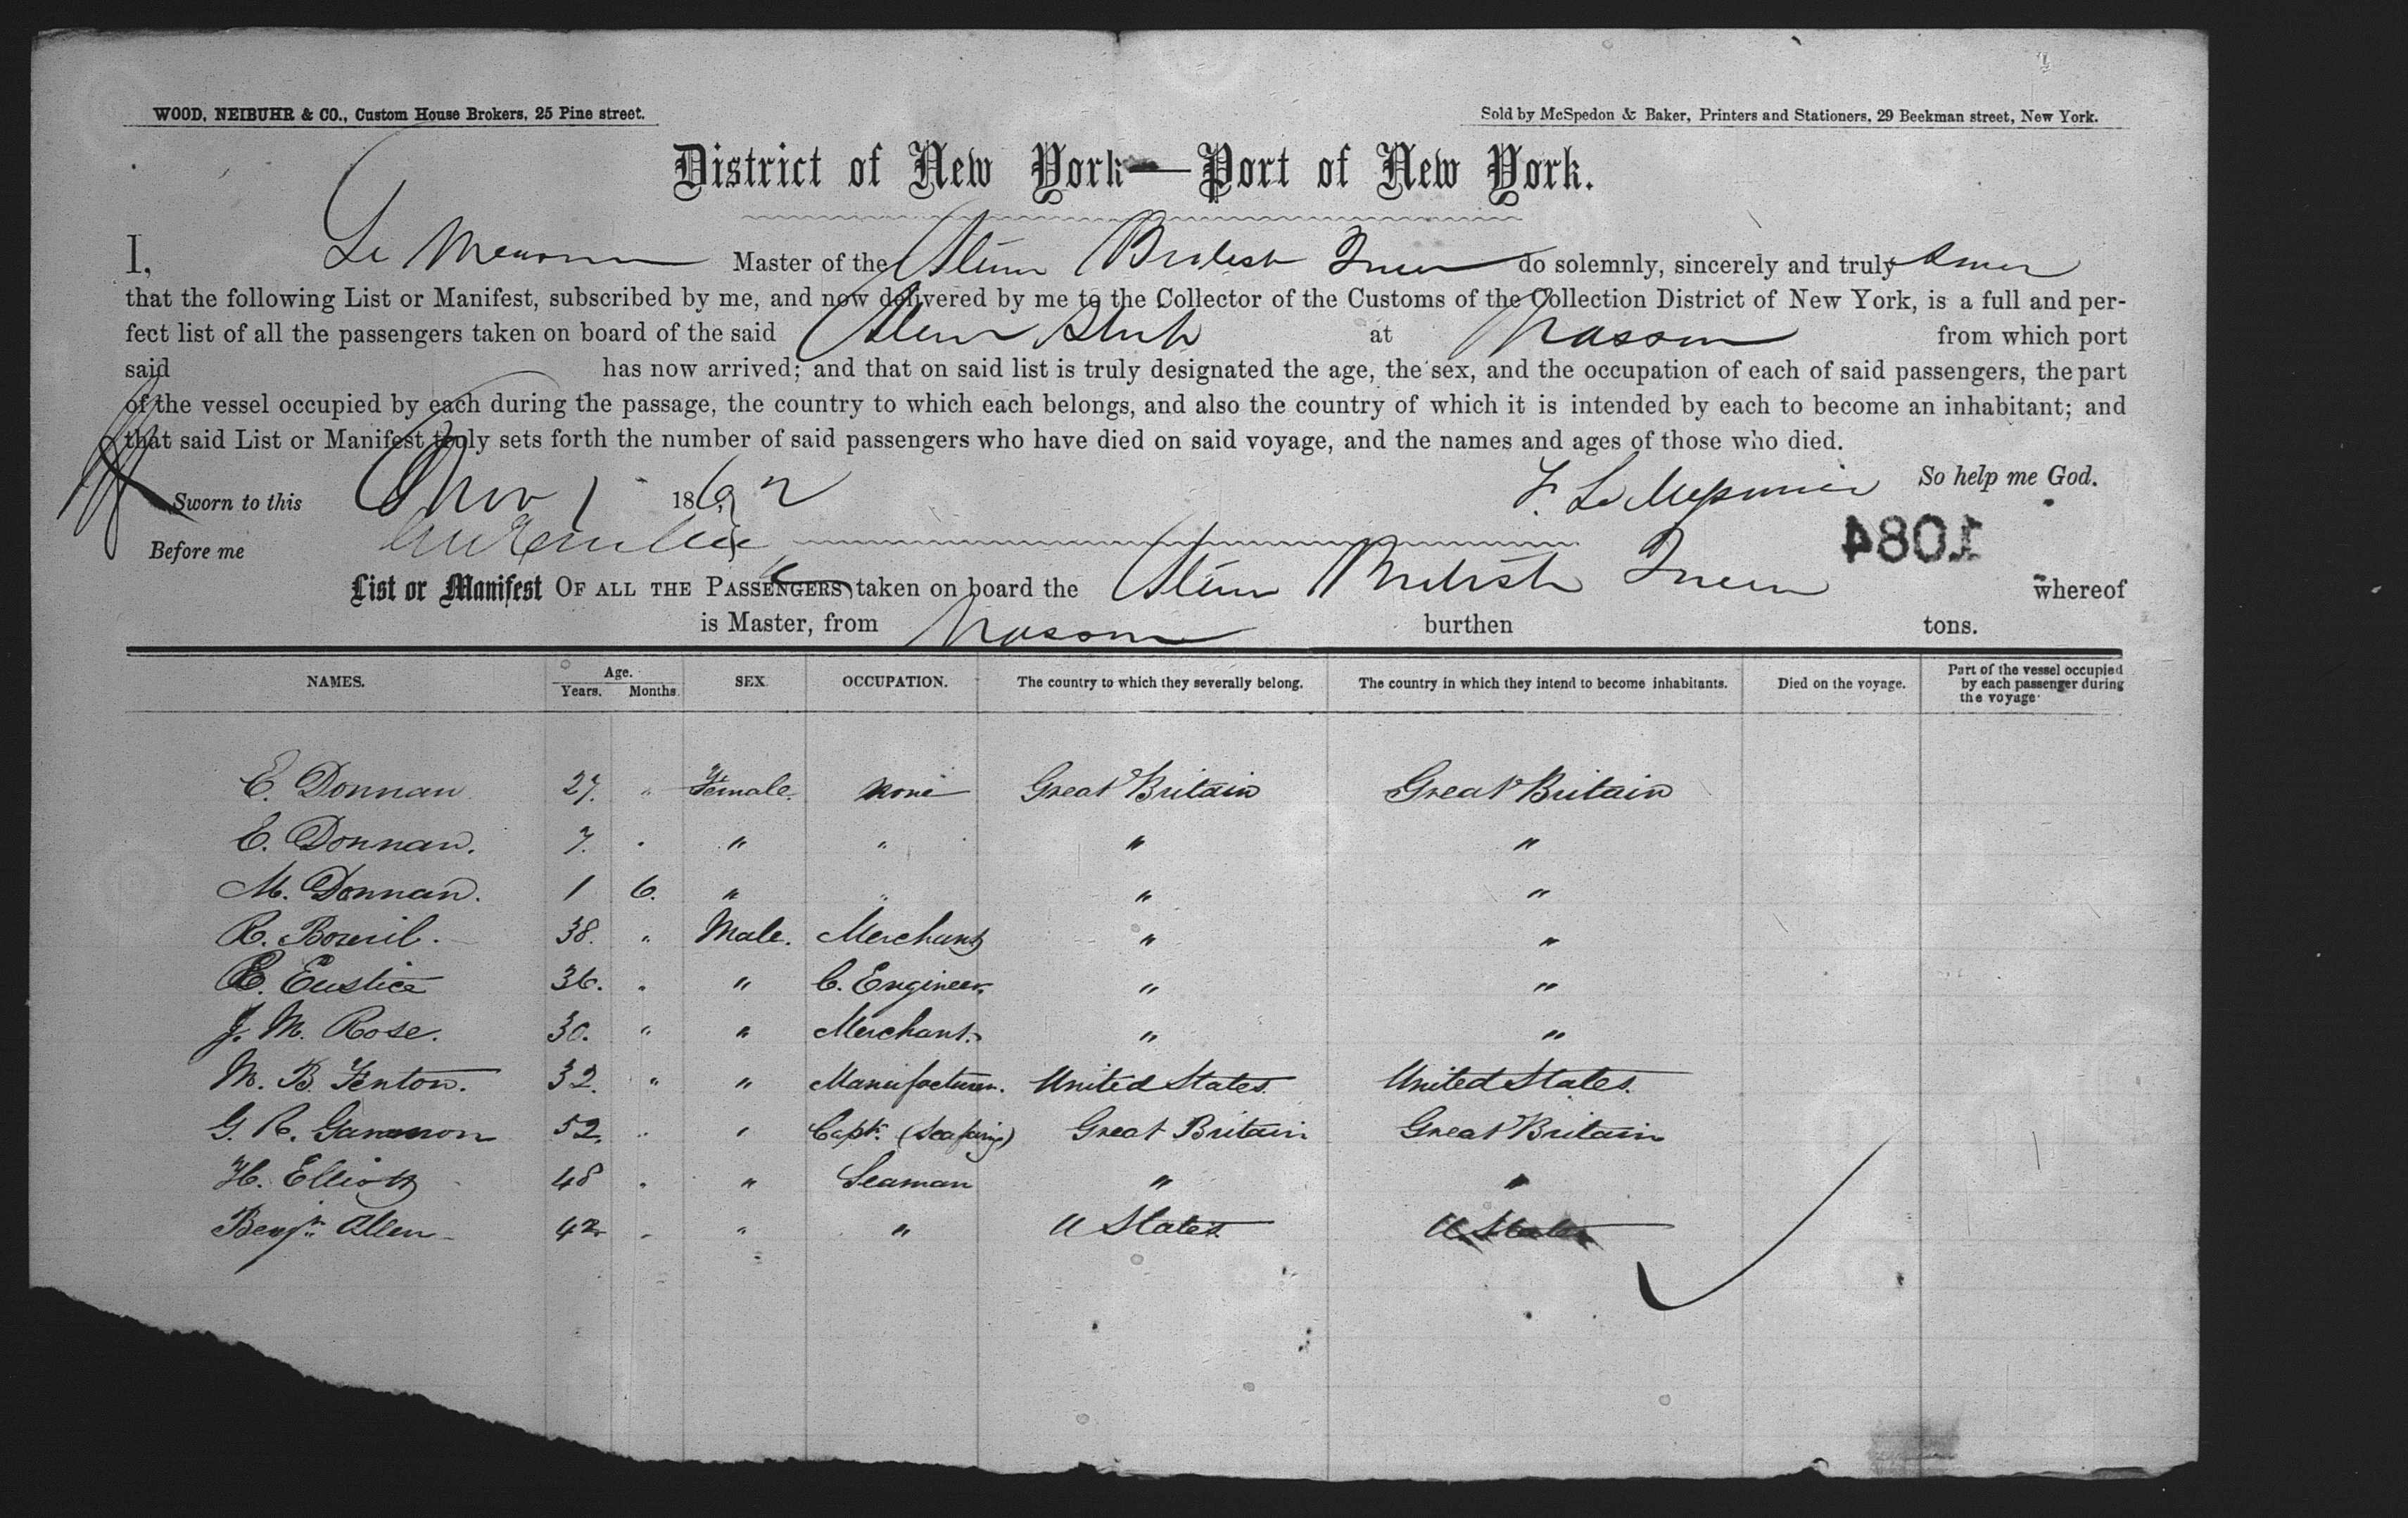 WOOD, NEIBUHR & CO., Custom House Brokers, 25 Pine street.
Sold by McSpedon & Baker, Printers and Stationers, 29 Beekman street, New York.
District of New York—Port of New York.
I, Le Master of the Steamr British Queen do solemnly, sincerely and truly swear
that the following List or Manifest, subscribed by me, and now delivered by me to the Collector of the Customs of the Collection District of New York, is a full and per-
fect list of all the passengers taken on board of the said Steam Ship at Nassau from which port
said has now arrived; and that on said list is truly designated the age, the sex, and the occupation of each of said passengers, the part
of the vessel occupied by each during the passage, the country to which each belongs, and also the country of which it is intended by each to become an inhabitant; and
that said List or Manifest truly sets forth the number of said passengers who have died on said voyage, and the names and ages of those who died.
So help me God.
Sworn to this Nov 1 1862 F. Le
1084
Before me
List or Manifest OF ALL THE PASSENGERS taken on board the Steamr British Queen whereof
is Master, from Nassau burthen tons.
NAMES. Age. Years. Months. SEX. OCCUPATION. The country to which they severally belong. The country in which they intend to become inhabitants. Died on the voyage. Part of the vessel occupied by each passenger during the voyage
E. Donnan 27. " Female. none Great Britain Great Britain
E. Donnan. 7. " " " " "
M. Donnan. 1 6. " " " "
R. 38. " Male. Merchant " "
Eustice 36. " " C. Engineer. " "
J. M. Rose. 30. " " Merchant. " "
M. B. Fenton. 32. " " Manufacturer. United States. United States.
G. R. Gammon 52. " " Capt. (Seafaring) Great Britain Great Britain
H. Elliott 48 " " Seaman " "
Benjn. Allen 42 " " " U States. U States